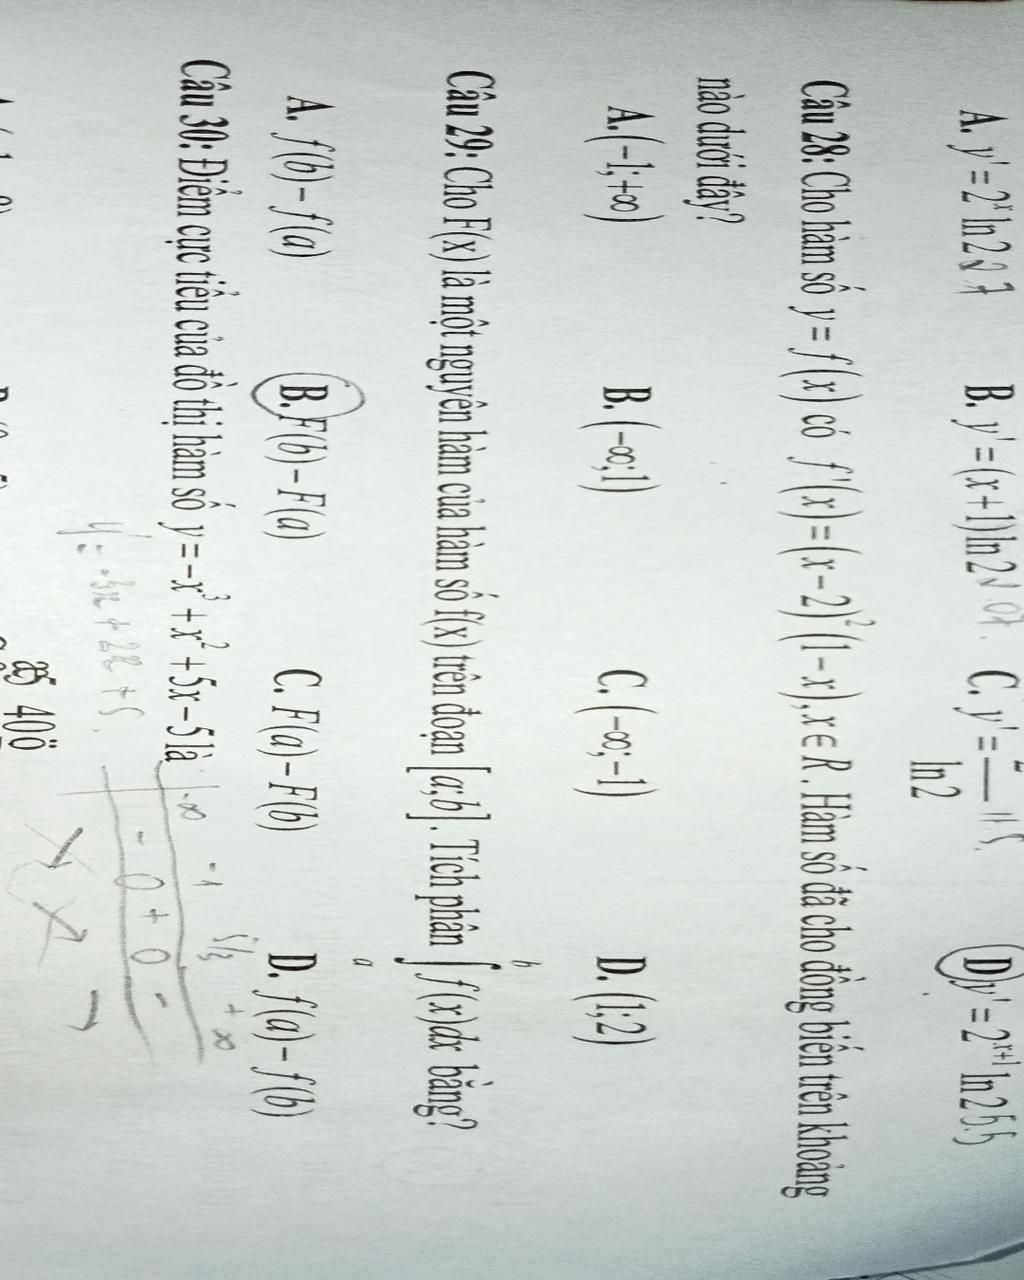 A. y' = 2ˣ ln 2 B. y' = (x+1)ln 2 C. y' = ln 2 D y' = 2ˣ⁺¹ ln 2 5.5
Câu 28: Cho hàm số y = f(x) có f'(x) = (x-2)²(1-x), x ∈ R. Hàm số đã cho đồng biến trên khoảng
nào dưới đây?
A. (-1;+∞) B. (-∞;1) C. (-∞;-1) D. (1;2)
Câu 29: Cho F(x) là một nguyên hàm của hàm số f(x) trên đoạn [a;b]. Tích phân ∫ₐᵇ f(x)dx bằng?
A. f(b) - f(a) B. F(b) - F(a) C. F(a) - F(b) D. f(a) - f(b)
Câu 30: Điểm cực tiểu của đồ thị hàm số y = -x³ + x² + 5x - 5 là
-∞ -1 5/3 +∞
- 0 + 0 -
y' = -3x + 2x + 5
40